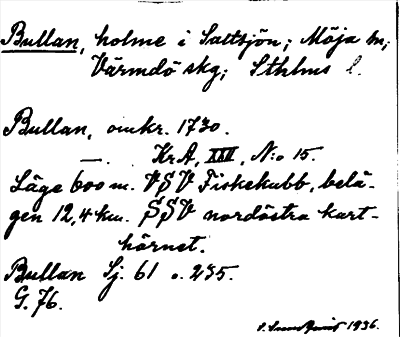 Bullan, holme i Saltsjön; Möja sn;
Värmdö skg; Sthlms l.
Bullan, omkr. 1730.
—. Kr A, XXII, N:o 15.
Läge 600 m. VSV Fiskekubb, belä-
gen 12,4 km. SSV nordöstra kart-
hörnet.
Bullan Sj. 61 o. 235.
G. 76.
1936.